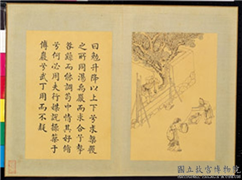 曰勉升降以上下兮求榘矱
之所同湯禹嚴而求合兮摯
咎繇而能調苟中情其好脩
兮何必用夫行媒說操築于
傅巖兮武丁用而不疑
國立故宮博物院